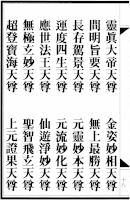 靈眞大帝天尊　金姿妙相天尊
問明旨要天尊　無上最勝天尊
長存駕景天尊　元靈妙本天尊
運度四生天尊　元流妙化天尊
應世法王天尊　仙遊淨妙天尊
無極玄妙天尊　聖智飛玄天尊
超登寶海天尊　上元證果天尊